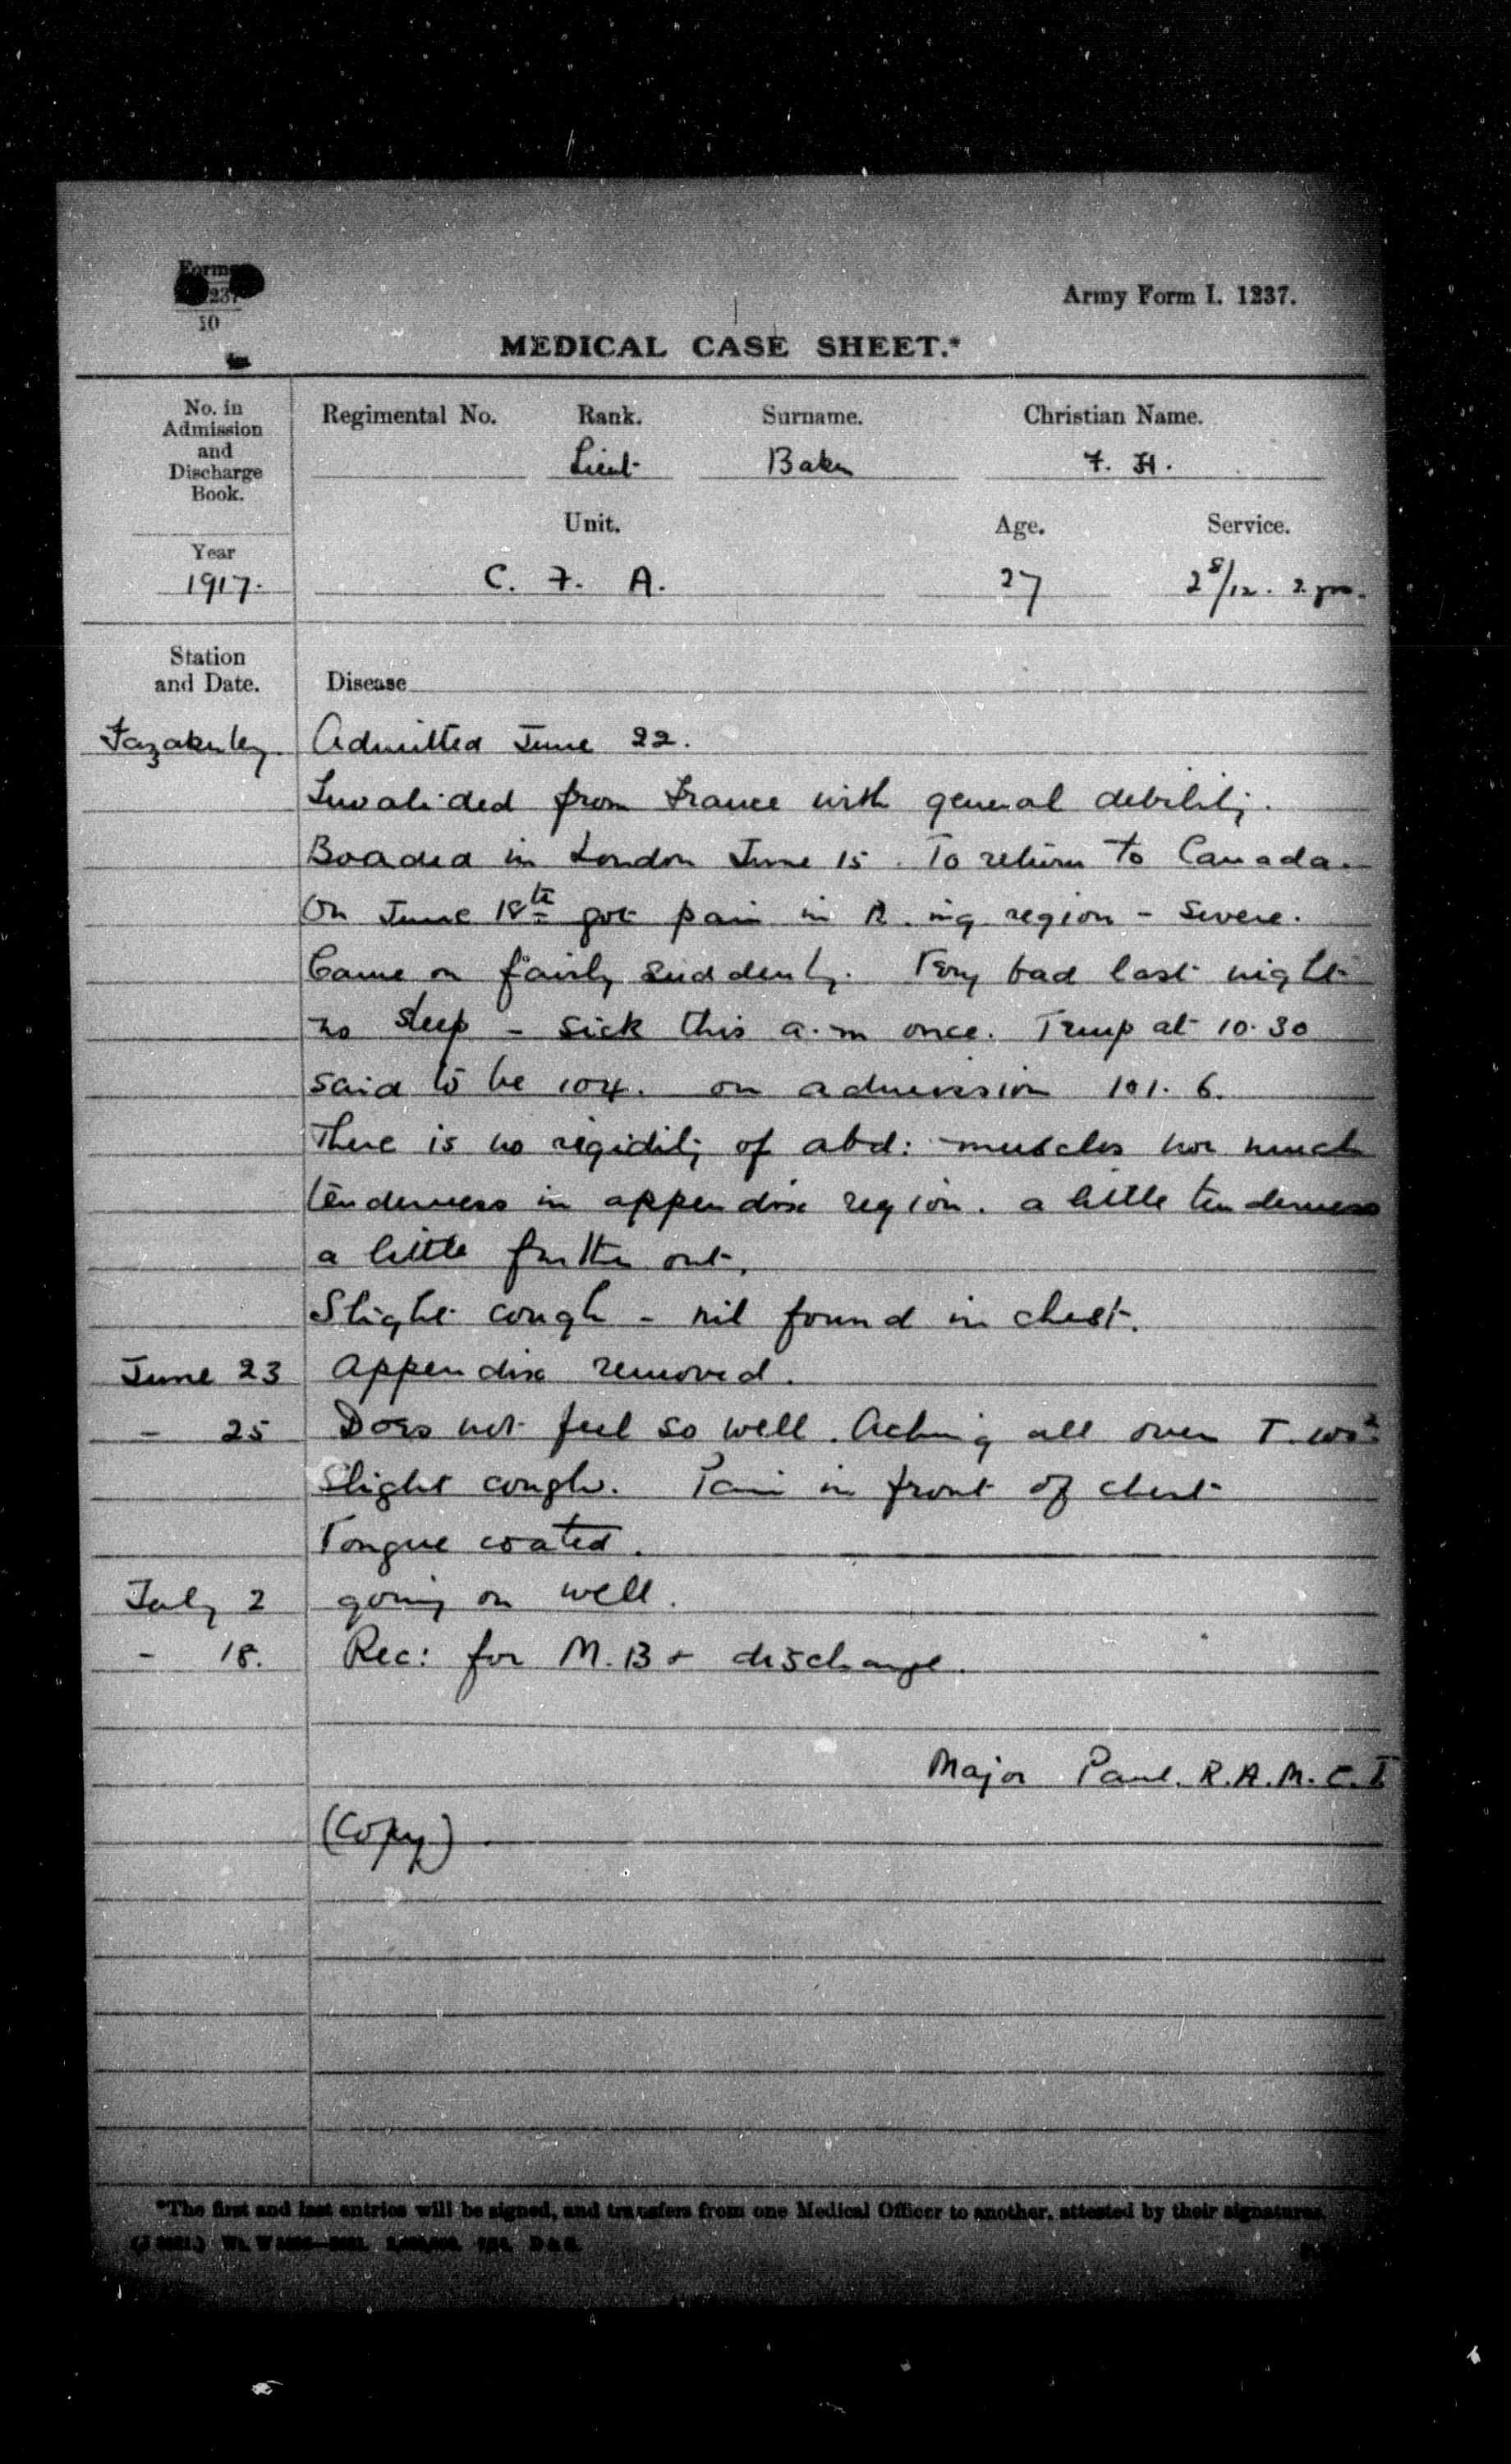 Forms
237
10
Army Form I. 1237.
MEDICAL CASE SHEET.*
No. in Admission and Discharge Book.
Regimental No. Rank. Surname. Christian Name.
Lieut Baker F. H.
Unit. Age. Service.
Year
1917. C. F. A. 27 2 8/12. 2 yrs.
Station and Date. Disease
Fazakerley. Admitted June 22.
Invalided from France with general debility.
Boarded in London June 15. To return to Canada.
On June 18th got pain in R. ing region - severe.
Came on fairly suddenly. Very bad last night
no sleep - sick this a.m once. Temp at 10.30
said to be 104. on admission 101. 6.
There is no rigidity of abd: muscles nor much
tenderness in appendix region. a little tenderness
a little further out.
Slight cough - nil found in chest.
June 23 Appendix removed.
- 25 Does not feel so well. Aching all over T.
Slight cough. Pain in front of chest
Tongue coated.
July 2 going on well.
- 18. Rec: for M.B & discharge.
Major Paul. R.A.M.C.T
(Copy).
*The first and last entries will be signed, and transfers from one Medical Officer to another, attested by their signatures.
D & S.